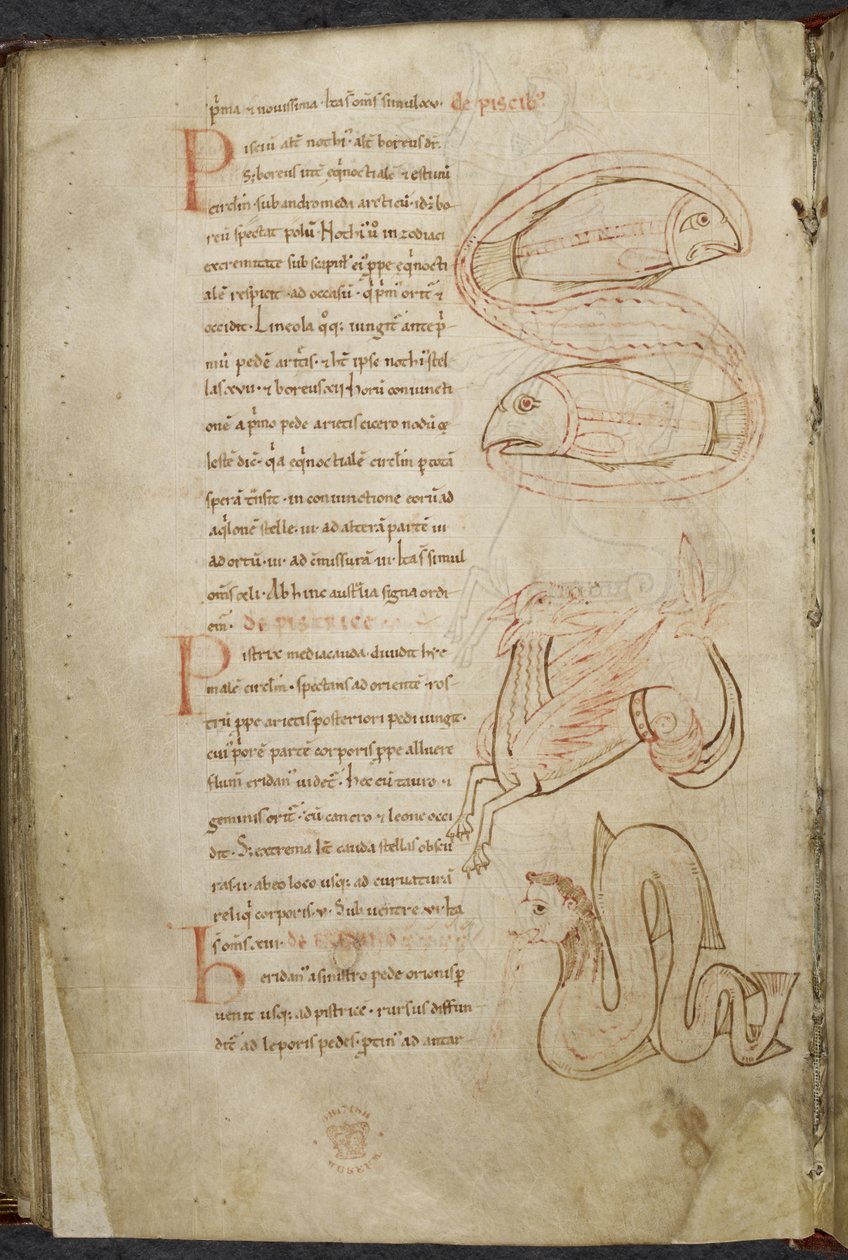 p̄ma & nouissima · Ita s̄ om̄s simul xv · de piscib᾽
Pisciū alt̄ nothi᾽ alt̄ boreus dr̄.
S; boreus int̄ eq̍noctialē & estiuū
circlm̄ · sub andromeda arcticū · id; bo
reū spectat polū · Nothi᾽ ů in zodiaci
extremitate sub scapul᾽ ei᾽ ꝓpe eq̍nocti
alē respicit · ad occasū · q̍ p̍m᾽ orit᷑ &
occidit · Lineola q̊q; iungit᷑ ante p̍
mū pedē arietis · & ht̄ ipse nothi᾽ stel
las xvii · & boreus xii · horū coniuncti
onē a p̍mo pede arietis cicero nodū ce
lestē dic̄ · q̍a eq̍noctialē circlm̄ ꝑ totā
sperā tͣnsit · in coniunctione eorū ad
aq̍lonē stelle · iii · ad alterā partē iii
ad ortū · iii · ad c̄missurā · iii · Ita s̄ simul
om̄s xli · Ab hinc austͣlia signa ordi
em᷑ · de pistrice
Pistrix media cauda diuidit hẏe
malē circlm̄ · spectans ad orientē · ros
trū ꝓpe arietis posteriori pedi iungit ·
cui᾽ p̍orē partē corporis ꝓpe alluere
flum̄ eridan᾽ uidet᷑ · hec cū tauro &
geminis orit᷑ · cū cancro & leone occi
dit · S; extrema ht̄ cauda stellas obscu
ras · ii · ab eo loco usq; ad curuaturā
reliq̍ corporis · v · Sub uentre · vi · Ita
s̄ om̄s · xiii · de
heridan᾽ a sinistro pede orionis ꝑ
uenit usq; ad pistrice · rursus diffun
dit᷑ ad leporis pedes · ꝓtin᾽ ad antar
BRITISH MUSEUM